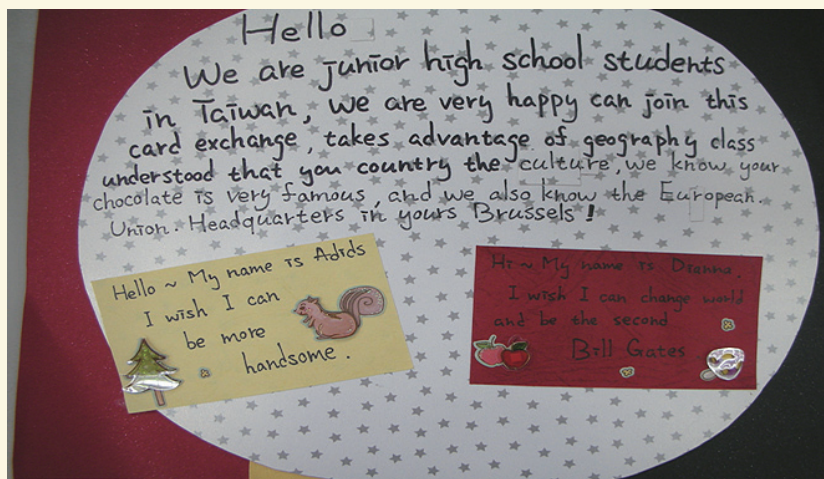 Hello
We are junior high school students
in Taiwan, we are very happy can join this
card exchange, takes advantage of geography class
understood that you country the culture, we know your
chocolate is very famous, and we also know the European.
Union. Headquarters in yours Brussels!
Hello ~ My name is Adids
I wish I can
be more
handsome.
Hi ~ My name is Dianna.
I wish I can change world
and be the second
Bill Gates